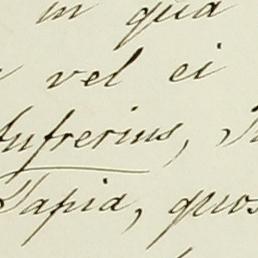 in qua
vel ei
Aufrerius,
Tapia, quos